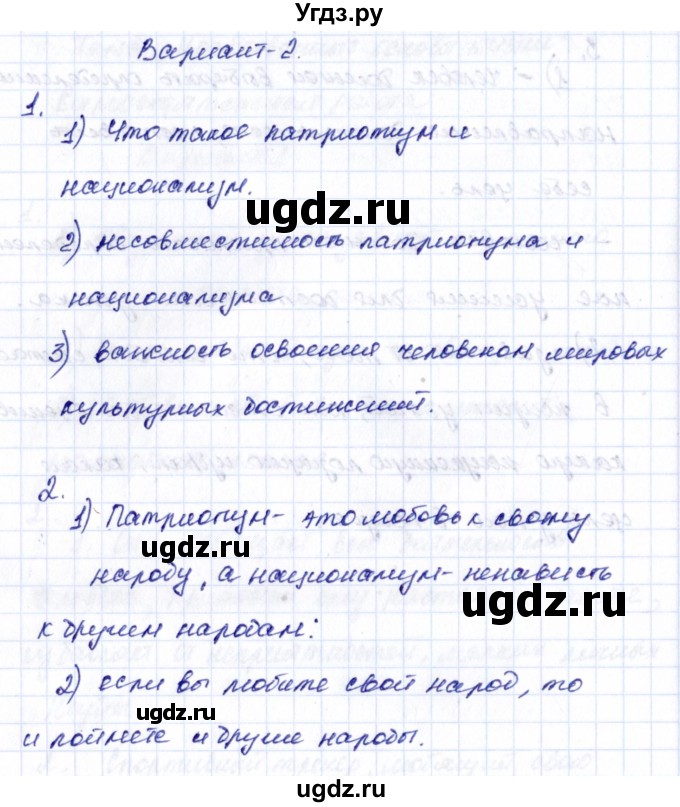 Угдз.ру
Вариант-2.
1.
1) Что такое патриотизм и
национализм.
ugdz.ru
2) несовместимость патриотизма и
национализма
3) важность освоения человеком мировых
культурных достижений.
2.
1) Патриотизм- это любовь к своему
ugdz.ru
народу, а национализм- ненависть
ugdz.ru
к другим народам:
2) если вы любите свой народ, то
ugdz.ru
и поймете и другие народы.
ugdz.ru